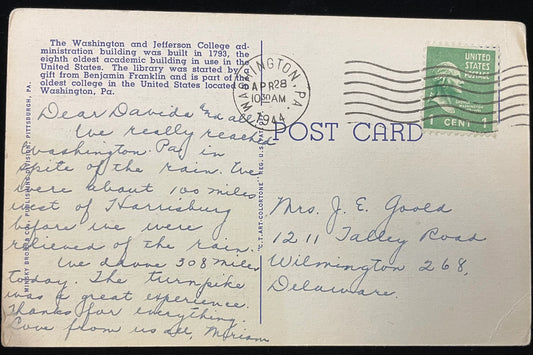 The Washington and Jefferson College ad-
ministration building was built in 1793, the
eighth oldest academic building in use in the
United States. The library was started by a
gift from Benjamin Franklin and is part of the
oldest college in the United States located at
Washington, Pa.
WASHINGTON, PA.
APR 28
10 30 AM
1944
UNITED
STATES
POSTAGE
1 CENT 1
POST CARD
Dear Davids and all
We really reached
Washington. Pa. in
spite of the rain. We
were about 100 miles
west of Harrisburg
before we were
relieved of the rain.
We drove 308 miles
today. The turnpike
was a great experience.
Thanks for everything.
Love from us all, Miriam
Mrs. J. E. Goold
1211 Talley Road
Wilmington 268,
Delaware.
MINSKY BROS. &
PITTSBURGH, PA.
"C.T. ART-COLORTONE" REG. U.S. PAT. OFF.